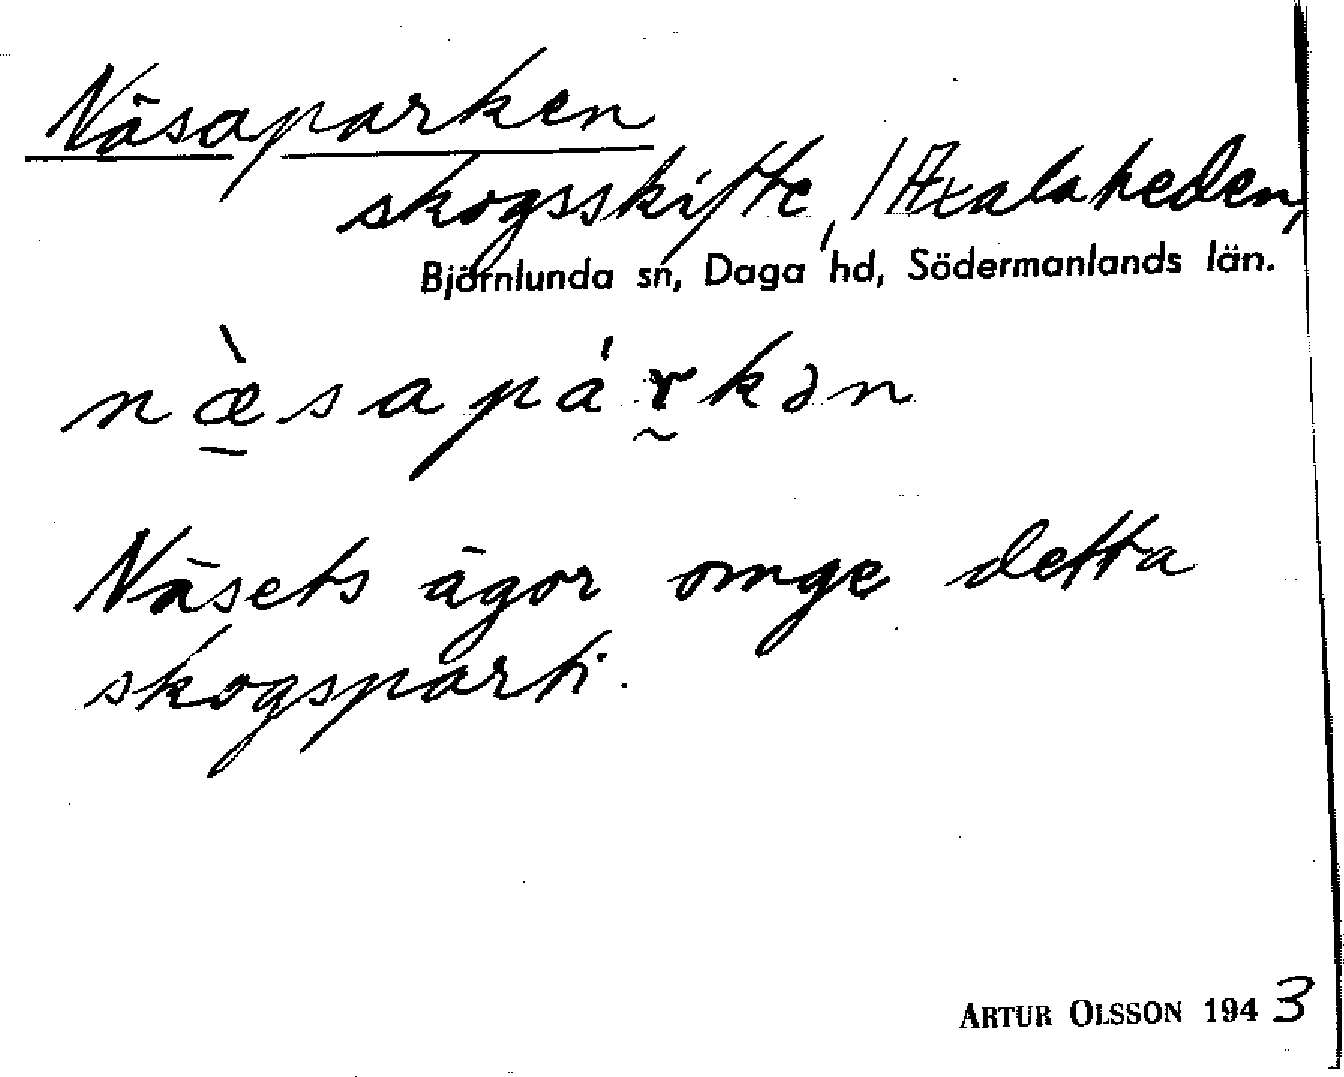 Näsaparken
skogsskifte, /Axalaheden,
Björnlunda sn, Daga hd, Södermanlands län.
næ̠̀sapár̰kən
Näsets ägor omge detta
skogsparti.
ARTUR OLSSON 1943